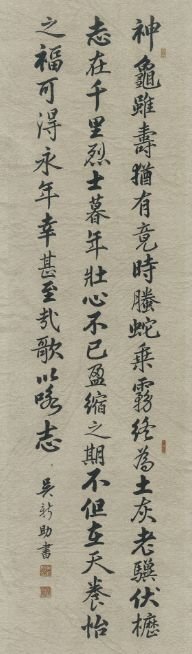 神龜雖壽猶有竟時螣蛇乘霧終為土灰老驥伏櫪
志在千里烈士暮年壯心不已盈縮之期不但在天養怡
之福可得永年幸甚至哉歌以咏志
吳新助書